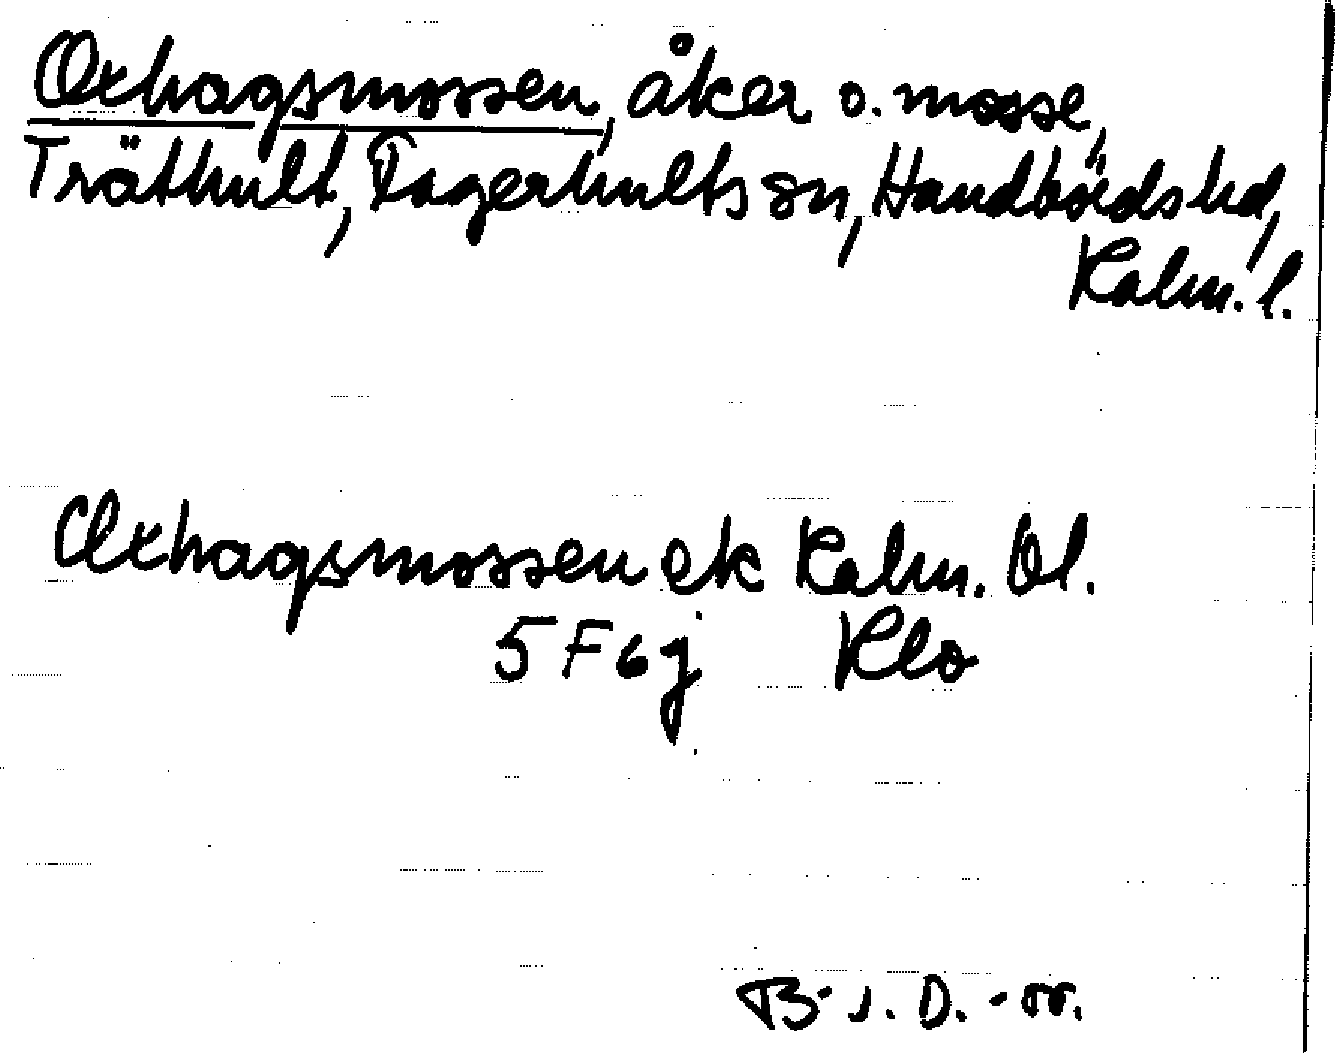 Oxhagsmossen, åker o. mosse,
Träthult, Fagerhults sn, Handbörds hd,
Kalm. l.
Oxhagsmossen ek Kalm. öl.
5 F 6 j Klo
B-J. D. -55.